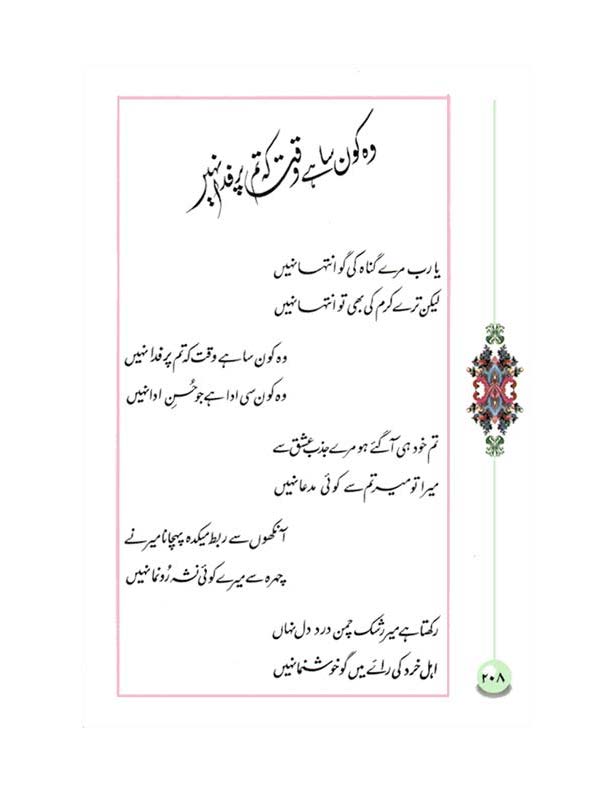 وہ کون سا ہے وقت کہ تم پر فدا نہیں
یا رب مرے گناہ کی گو انتہا نہیں
لیکن ترے کرم کی بھی تو انتہا نہیں
وہ کون سا ہے وقت کہ تم پر فدا نہیں
وہ کون سی ادا ہے جو حُسنِ ادا نہیں
تم خود ہی آ گئے ہو مرے جذبِ عشق سے
میرا تو میرؔ تم سے کوئی مدعا نہیں
آنکھوں سے ربط میکدہ پہچانا میرؔ نے
چہرہ سے میرے کوئی نشہ رُونما نہیں
رکھتا ہے میرؔ رشک چمن درد دل نہاں
اہل خرد کی رائے میں گو خوشنما نہیں
۲۰۸